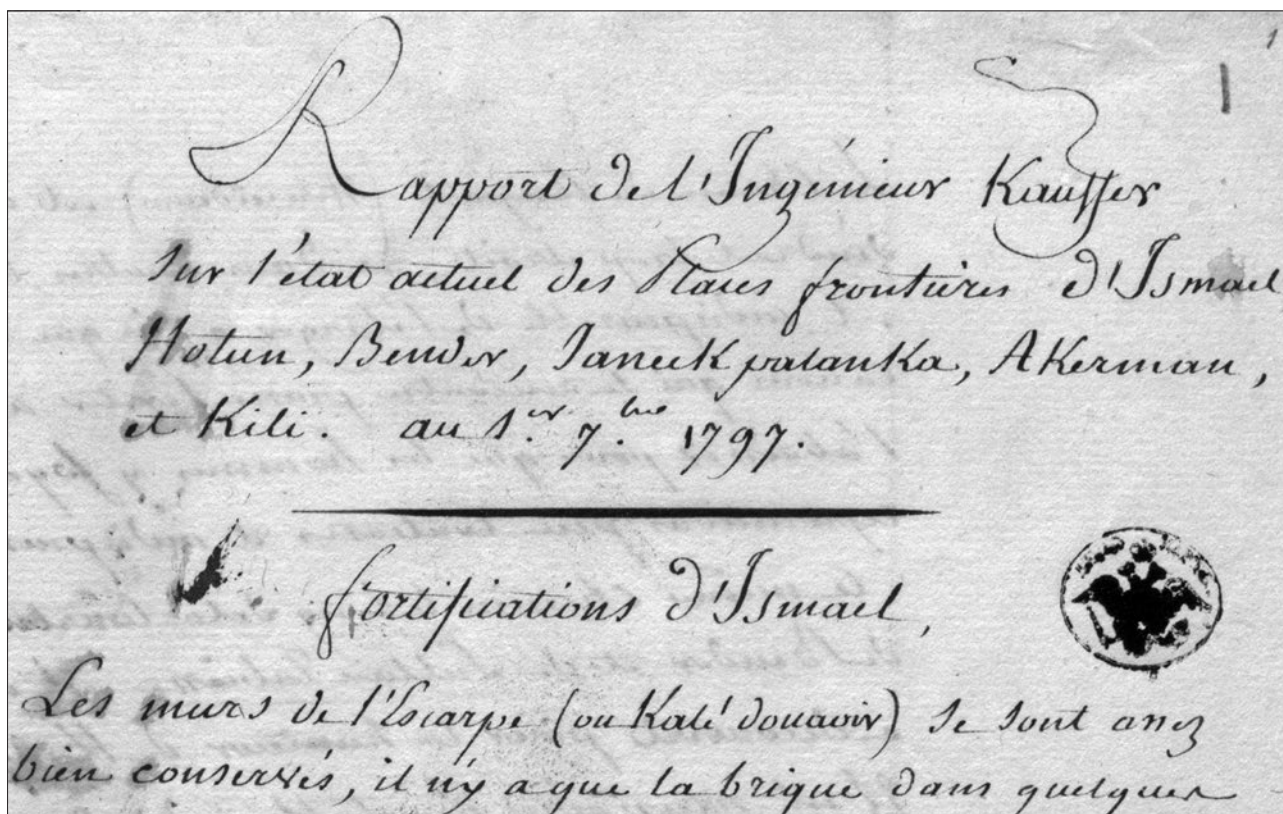 1
Rapport de l'Ingénieur Kauffer
sur l'état actuel des Places frontières d'Ismael
Hotun, Bender, Janeck palanka, Akerman,
et Kili. au 1.er 7.bre 1797.
fortifications d'Ismael,
Les murs de l'Escarpe (ou Kalé douavir) se sont assez
bien conservés, il n'y a que la brique dans quelques